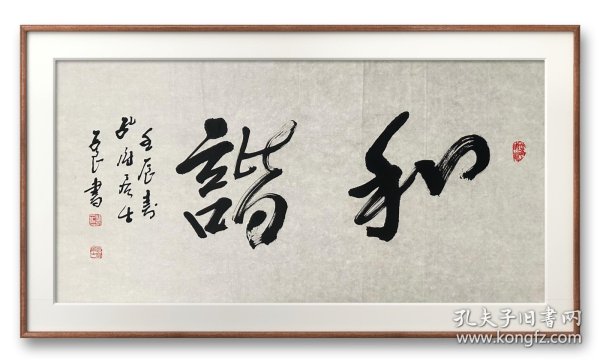 和諧
壬辰
居士
良書
孔夫子旧书网
www.kongfz.com